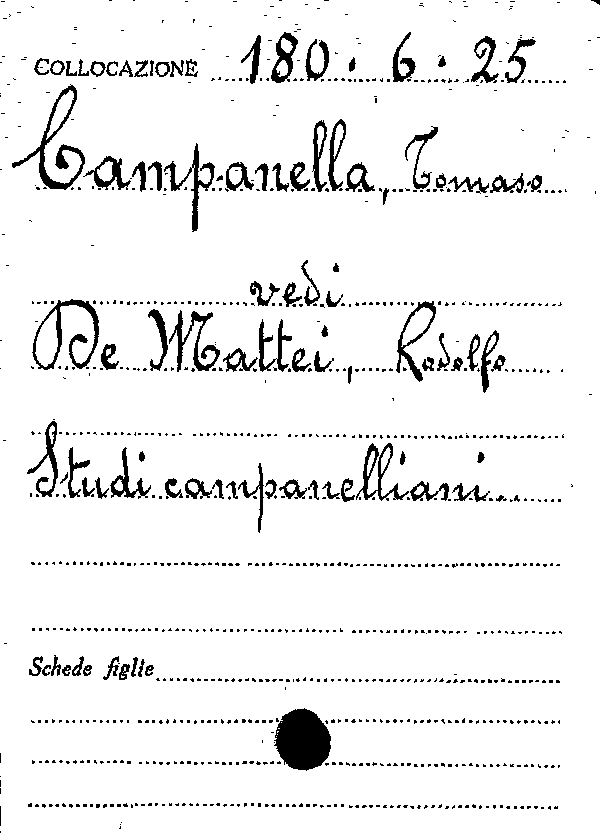 COLLOCAZIONE 180. 6. 25
Campanella, Tomaso
vedi
De Mattei, Rodolfo
Studi campanelliani..
Schede figlie